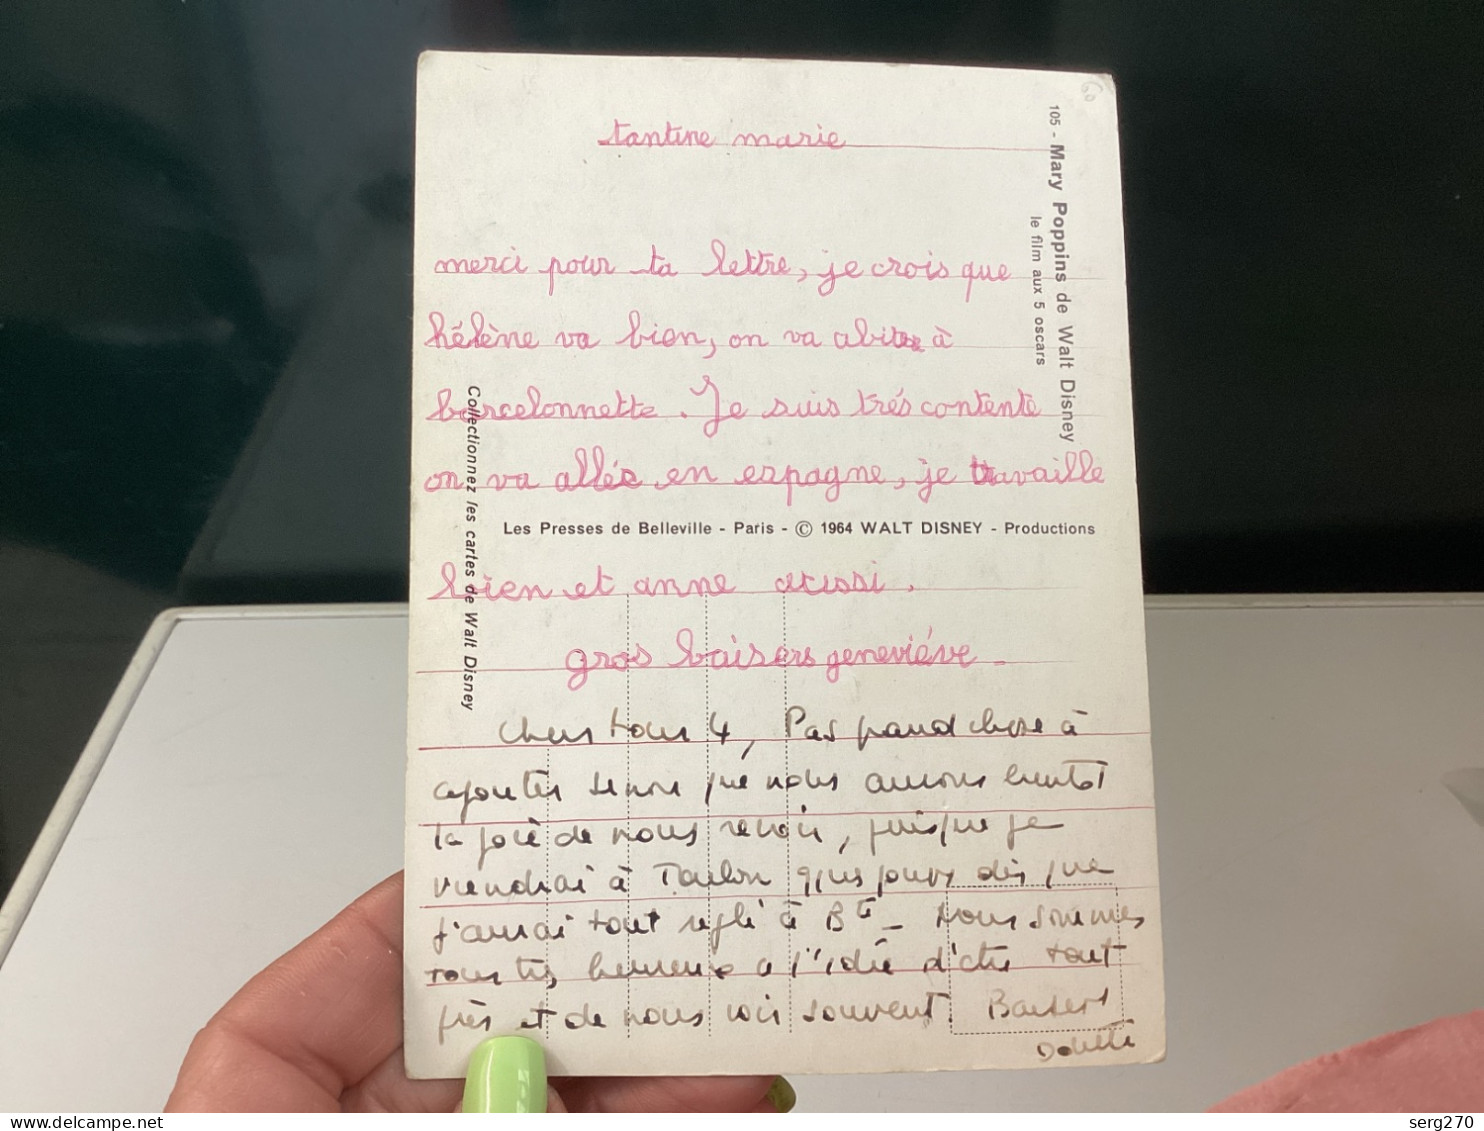 tantine marie
merci pour ta lettre, je crois que
hélène va bien, on va abiter à
barcelonnette. Je suis trés contente
on va allée en espagne, je travaille
Les Presses de Belleville - Paris - © 1964 WALT DISNEY - Productions
bien et anne aussi.
gros baisers geneviéve -
Chers tous 4, Pas grand chose à
ajouter sinon que nous aurons bientôt
la joie de nous revoir, puisque je
viendrai à Toulon qques jours dès que
j'aurai tout reglé à Bte - Nous sommes
tous très heureux a l'idée d'être tout
près et de nous voir souvent. Baisers
105 - Mary Poppins de Walt Disney
le film aux 5 oscars
Collectionnez les cartes de Walt Disney
60
www.delcampe.net
serg270